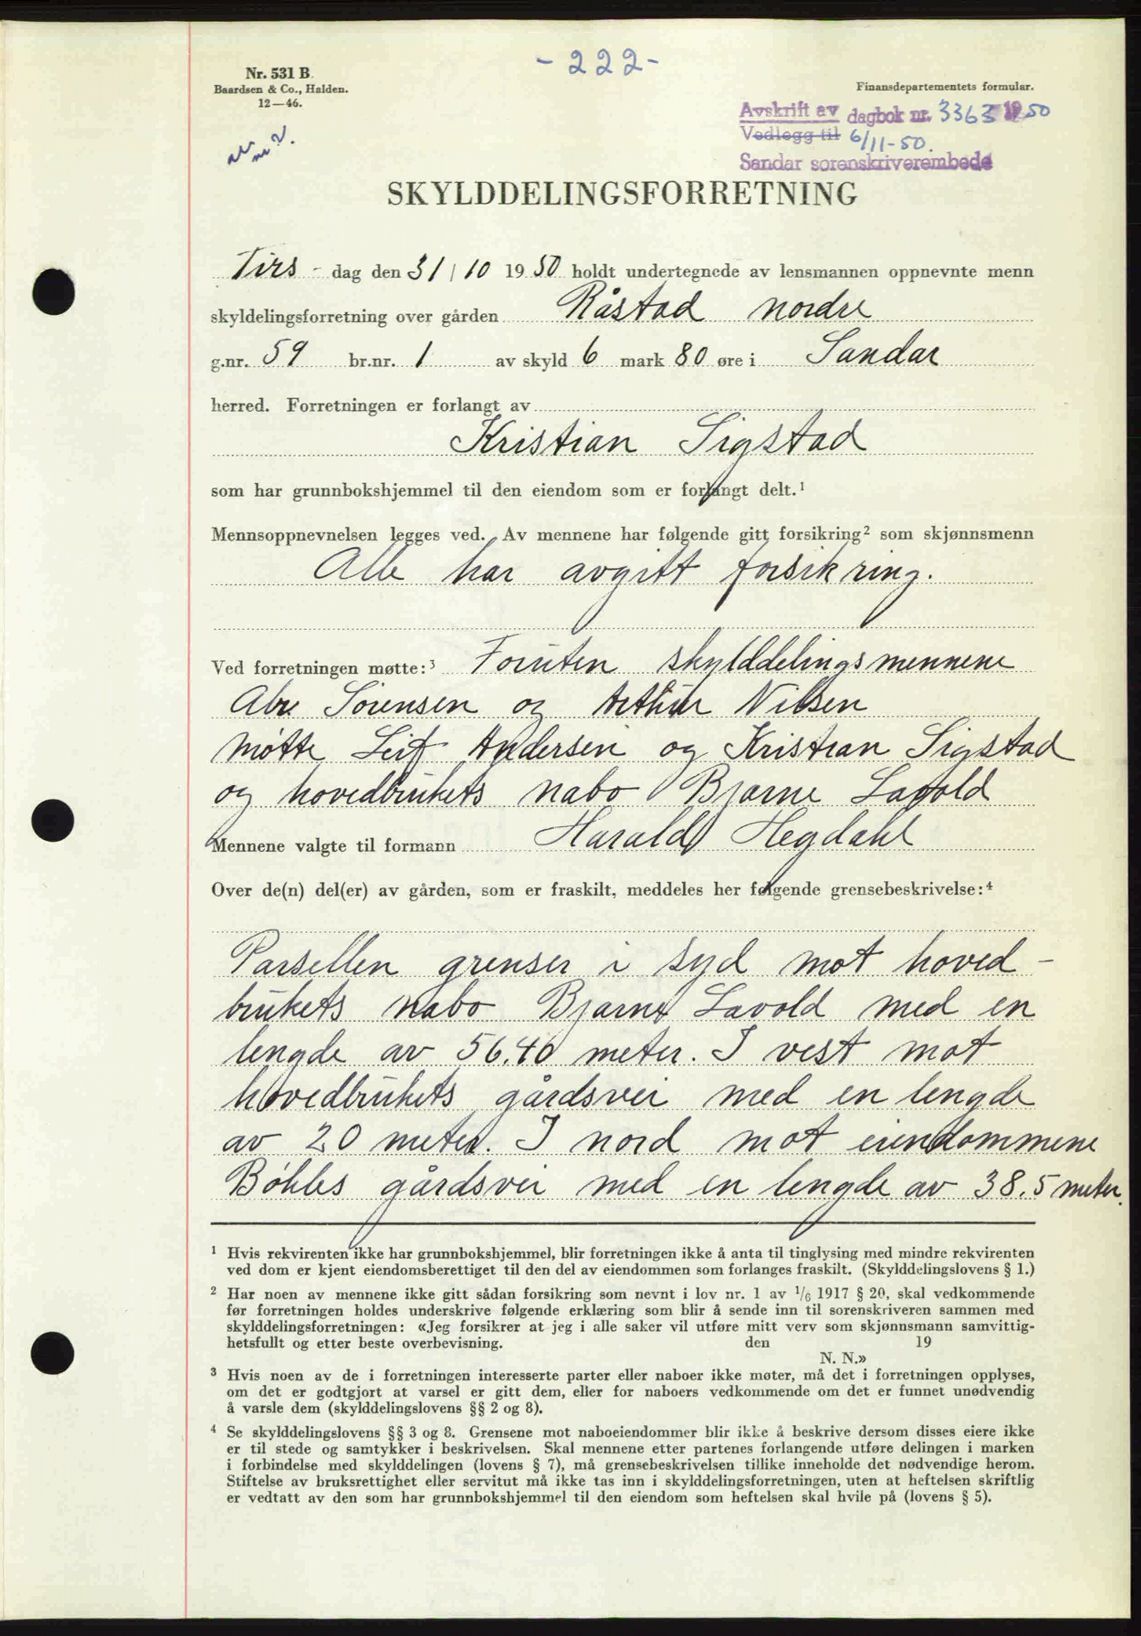 - 222 -
Nr. 531 B.
Baardsen & Co., Halden.
12—46.
Finansdepartementets formular.
Avskrift av dagbok nr. 3363 1950
Vedlegg til 6/11-50.
Sandar sorenskriverembede
SKYLDDELINGSFORRETNING
Tirs - dag den 31/10 1950 holdt undertegnede av lensmannen oppnevnte menn
skyldelingsforretning over gården Råstad nordre
g.nr. 59 br.nr. 1 av skyld 6 mark 80 øre i Sandar
herred. Forretningen er forlangt av
Kristian Sigstad
som har grunnbokshjemmel til den eiendom som er forlangt delt.¹
Mennsoppnevnelsen legges ved. Av mennene har følgende gitt forsikring² som skjønnsmenn
Alle har avgitt forsikring.
Ved forretningen møtte:³ Foruten skylddelingsmennene
Sørensen og Arthur Nilsen
møtte Leif Andersen og Kristian Sigstad
og hovedbrukets nabo Bjarne Lavold
Mennene valgte til formann Harald Hegdahl
Over de(n) del(er) av gården, som er fraskilt, meddeles her følgende grensebeskrivelse:⁴
Parsellen grenser i syd mot hoved-
brukets nabo Bjarne Lavold med en
lengde av 56.40 meter. I vest mot
hovedbrukets gårdsvei med en lengde
av 20 meter. I nord mot eiendommene
Bøkles gårdsvei med en lengde av 38.5 meter.
¹ Hvis rekvirenten ikke har grunnbokshjemmel, blir forretningen ikke å anta til tinglysing med mindre rekvirenten
ved dom er kjent eiendomsberettiget til den del av eiendommen som forlanges fraskilt. (Skylddelingslovens § 1.)
² Har noen av mennene ikke gitt sådan forsikring som nevnt i lov nr. 1 av ¹/₆ 1917 § 20, skal vedkommende
før forretningen holdes underskrive følgende erklæring som blir å sende inn til sorenskriveren sammen med
skylddelingsforretningen: «Jeg forsikrer at jeg i alle saker vil utføre mitt verv som skjønnsmann samvittig-
hetsfullt og etter beste overbevisning. den 19
N. N.»
³ Hvis noen av de i forretningen interesserte parter eller naboer ikke møter, må det i forretningen opplyses,
om det er godtgjort at varsel er gitt dem, eller for naboers vedkommende om det er funnet unødvendig
å varsle dem (skylddelingslovens §§ 2 og 8).
⁴ Se skylddelingslovens §§ 3 og 8. Grensene mot naboeiendommer blir ikke å beskrive dersom disses eiere ikke
er til stede og samtykker i beskrivelsen. Skal mennene etter partenes forlangende utføre delingen i marken
i forbindelse med skylddelingen (lovens § 7), må grensebeskrivelsen tillike inneholde det nødvendige herom.
Stiftelse av bruksrettighet eller servitut må ikke tas inn i skylddelingsforretningen, uten at heftelsen skriftlig
er vedtatt av den som har grunnbokshjemmel til den eiendom som heftelsen skal hvile på (lovens § 5).